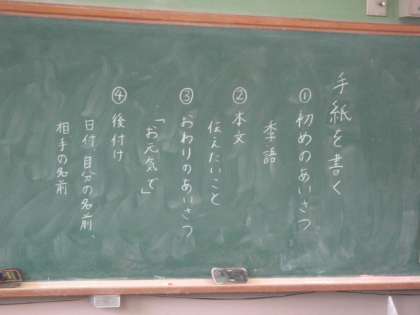 手紙を書く
①初めのあいさつ
季語
②本文
伝えたいこと
③おわりのあいさつ
・「お元気で」
④後付け
日付、自分の名前、
相手の名前